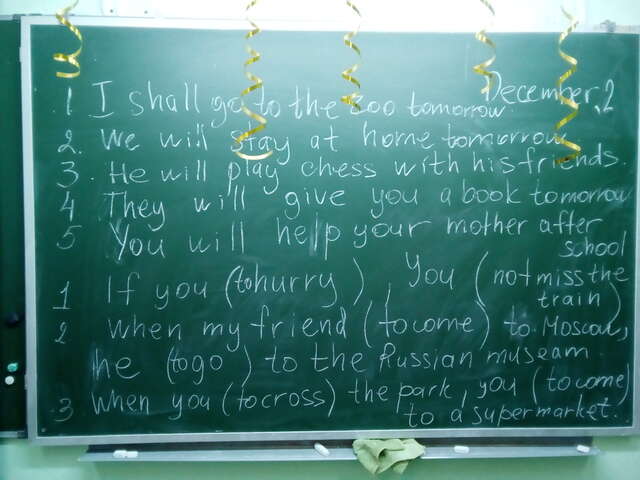 December, 2
1 I shall go to the zoo tomorrow.
2. We will stay at home tomorrow
3. He will play chess with his friends.
4 They will give you a book tomorrow
5 You will help your mother after
school
1 If you (to hurry), you (not miss the
train)
2 When my friend (to come) to Moscow,
he (to go) to the Russian museam
3 When you (to cross) the park, you (to come)
to a supermarket.